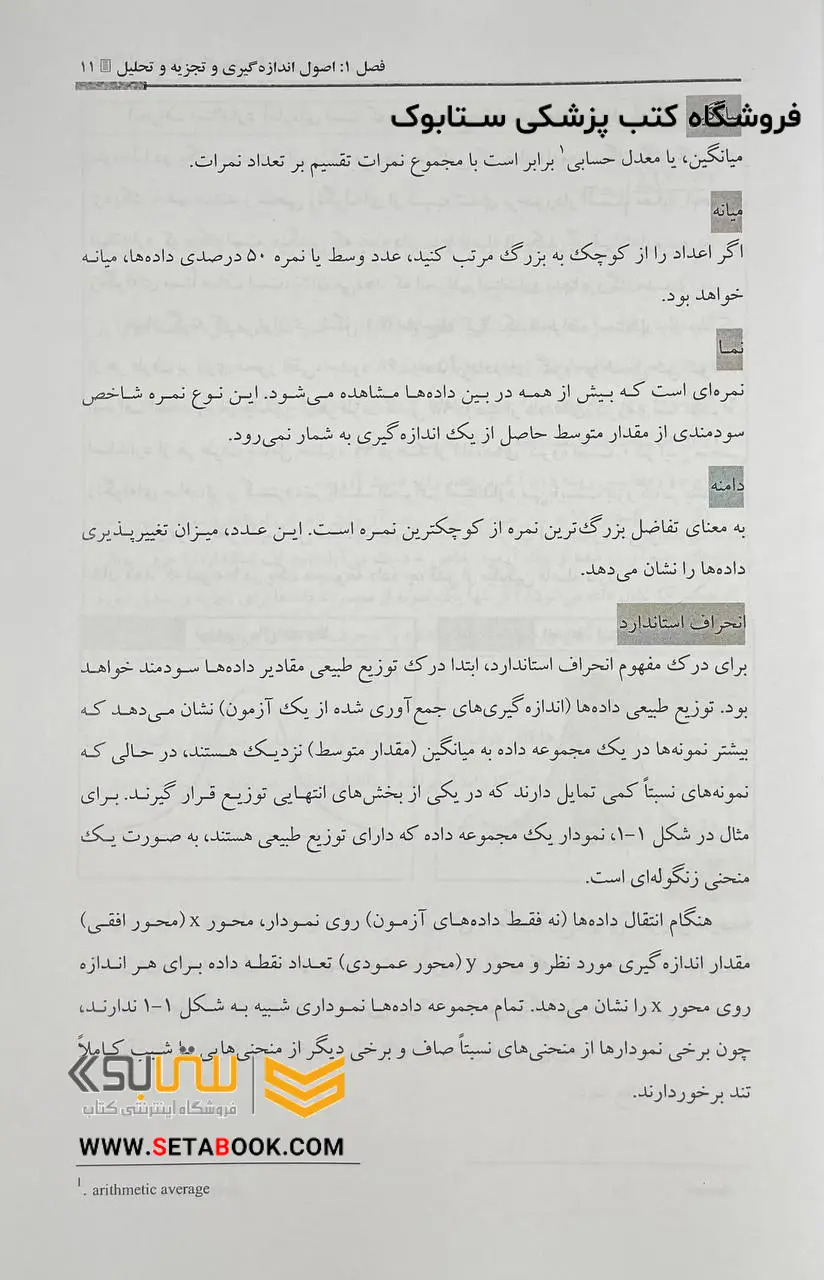 فصل ۱: اصول اندازه‌گیری و تجزیه و تحلیل ۱۱
فروشگاه کتب پزشکی ستابوک
میانگین، یا معدل حسابی۱ برابر است با مجموع نمرات تقسیم بر تعداد نمرات.
میانه
اگر اعداد را از کوچک به بزرگ مرتب کنید، عدد وسط یا نمره ۵۰ درصدی داده‌ها، میانه
خواهد بود.
نما
نمره‌ای است که بیش از همه در بین داده‌ها مشاهده می‌شود. این نوع نمره شاخص
سودمندی از مقدار متوسط حاصل از یک اندازه‌گیری به شمار نمی‌رود.
دامنه
به معنای تفاضل بزرگ‌ترین نمره از کوچکترین نمره است. این عدد، میزان تغییرپذیری
داده‌ها را نشان می‌دهد.
انحراف استاندارد
برای درک مفهوم انحراف استاندارد، ابتدا درک توزیع طبیعی مقادیر داده‌ها سودمند خواهد
بود. توزیع طبیعی داده‌ها (اندازه‌گیری‌های جمع‌آوری شده از یک آزمون) نشان می‌دهد که
بیشتر نمونه‌ها در یک مجموعه داده به میانگین (مقدار متوسط) نزدیک هستند، در حالی که
نمونه‌های نسبتاً کمی تمایل دارند که در یکی از بخش‌های انتهایی توزیع قرار گیرند. برای
مثال در شکل ۱-۱، نمودار یک مجموعه داده که دارای توزیع طبیعی هستند، به صورت یک
منحنی زنگوله‌ای است.
هنگام انتقال داده‌ها (نه فقط داده‌های آزمون) روی نمودار، محور x (محور افقی)
مقدار اندازه‌گیری مورد نظر و محور y (محور عمودی) تعداد نقطه داده برای هر اندازه
روی محور x را نشان می‌دهد. تمام مجموعه داده‌ها نموداری شبیه به شکل ۱-۱ ندارند،
چون برخی نمودارها از منحنی‌های نسبتاً صاف و برخی دیگر از منحنی‌هایی با شیب کاملاً
تند برخوردارند.
ستابوک
فروشگاه اینترنتی کتاب
WWW.SETABOOK.COM
1. arithmetic average